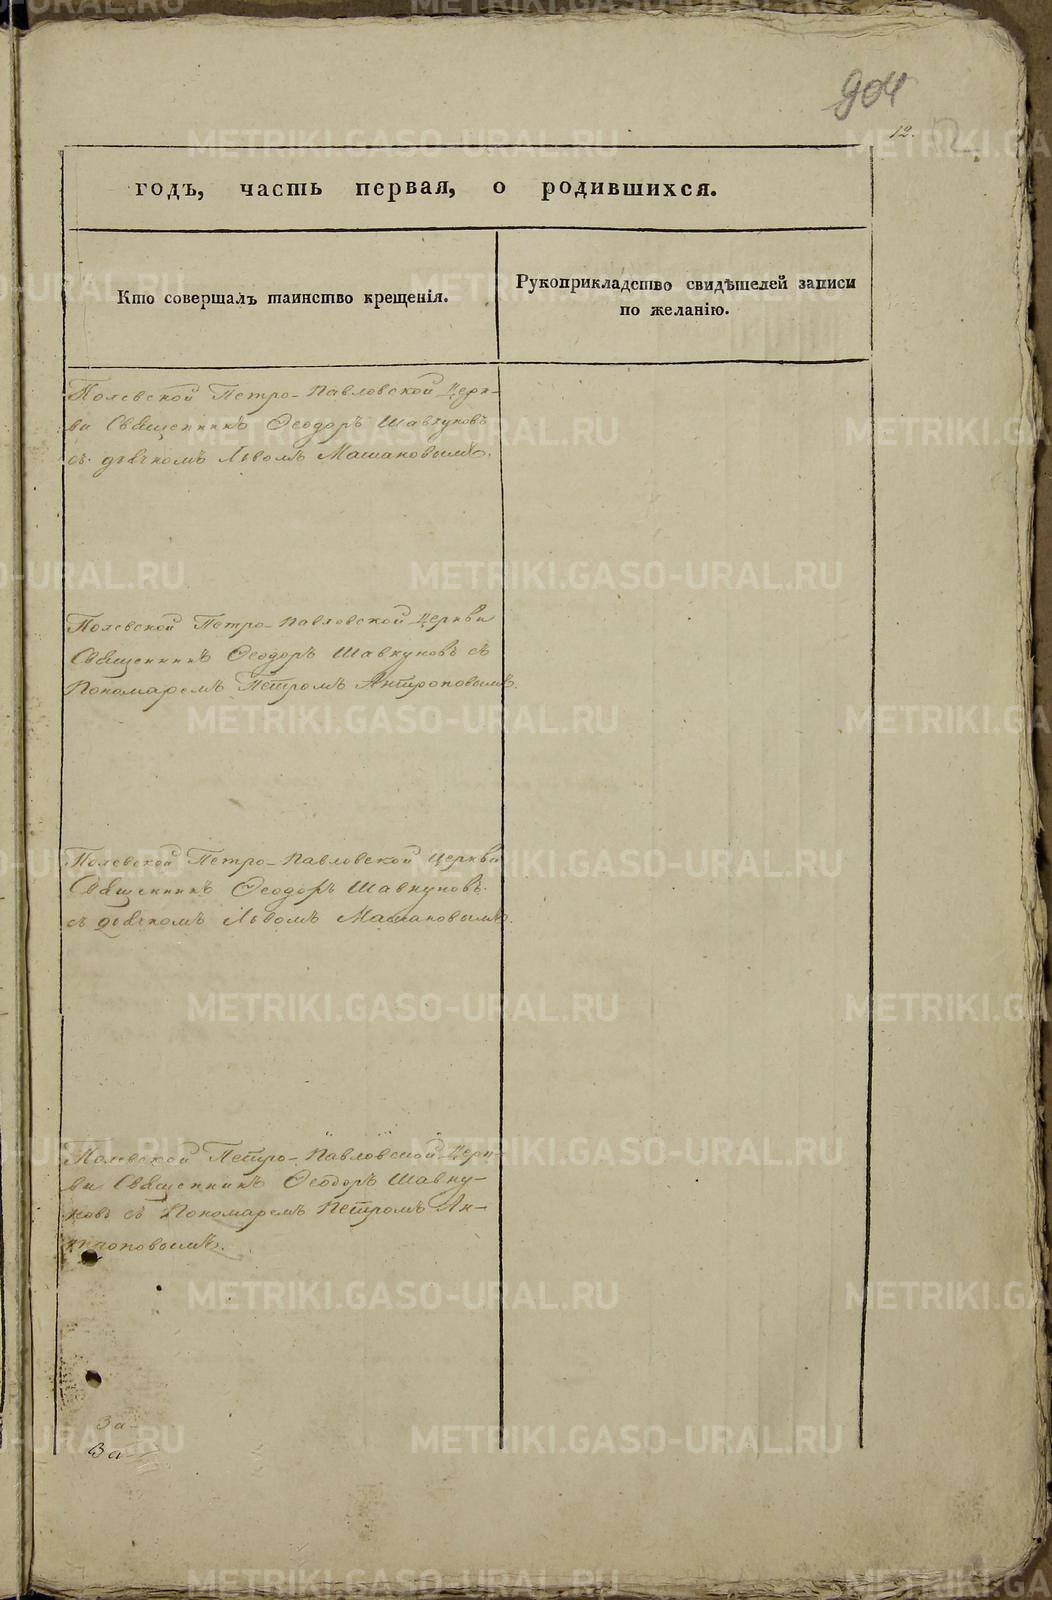 904
12.
годъ, часть первая, о родившихся.
Кто совершалъ таинство крещенія.
Рукоприкладство свидѣтелей записи
по желанію.
Полевской Петро-Павловской Церк-
ви Священникъ Ѳеодоръ Шавкуновъ
съ дьячкомъ Львомъ Машановымъ.
Полевской Петро-Павловской Церкви
Священникъ Ѳеодоръ Шавкуновъ съ
Пономаремъ Петромъ Антроповымъ
Полевской Петро-Павловской Церкви
Священникъ Ѳеодоръ Шавкуновъ
съ дьячкомъ Львомъ Машановымъ.
Полевской Петро-Павловской Церк-
ви Священникъ Ѳеодоръ Шавку-
новъ съ Пономаремъ Петромъ Ан-
троповымъ.
За-
За-
METRIKI.GASO-URAL.RU